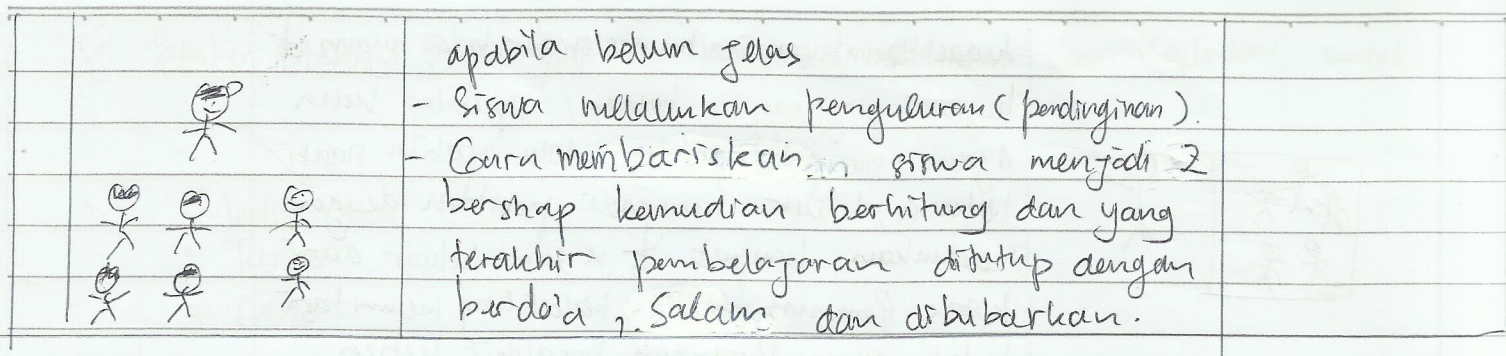 apabila belum jelas
- siswa melakukan penguluran (pendinginan).
- Guru membariskan siswa menjadi 2
bershap kemudian berhitung dan yang
terakhir pembelajaran ditutup dengan
berdo'a, salam dan dibubarkan.